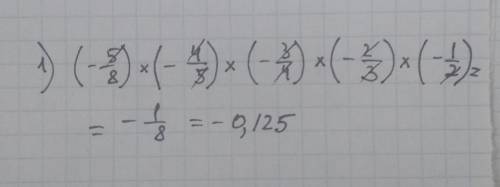 1) (-5/8) × (-4/5) × (-3/4) × (-2/3) × (-1/2) =
= -1/8 = -0,125